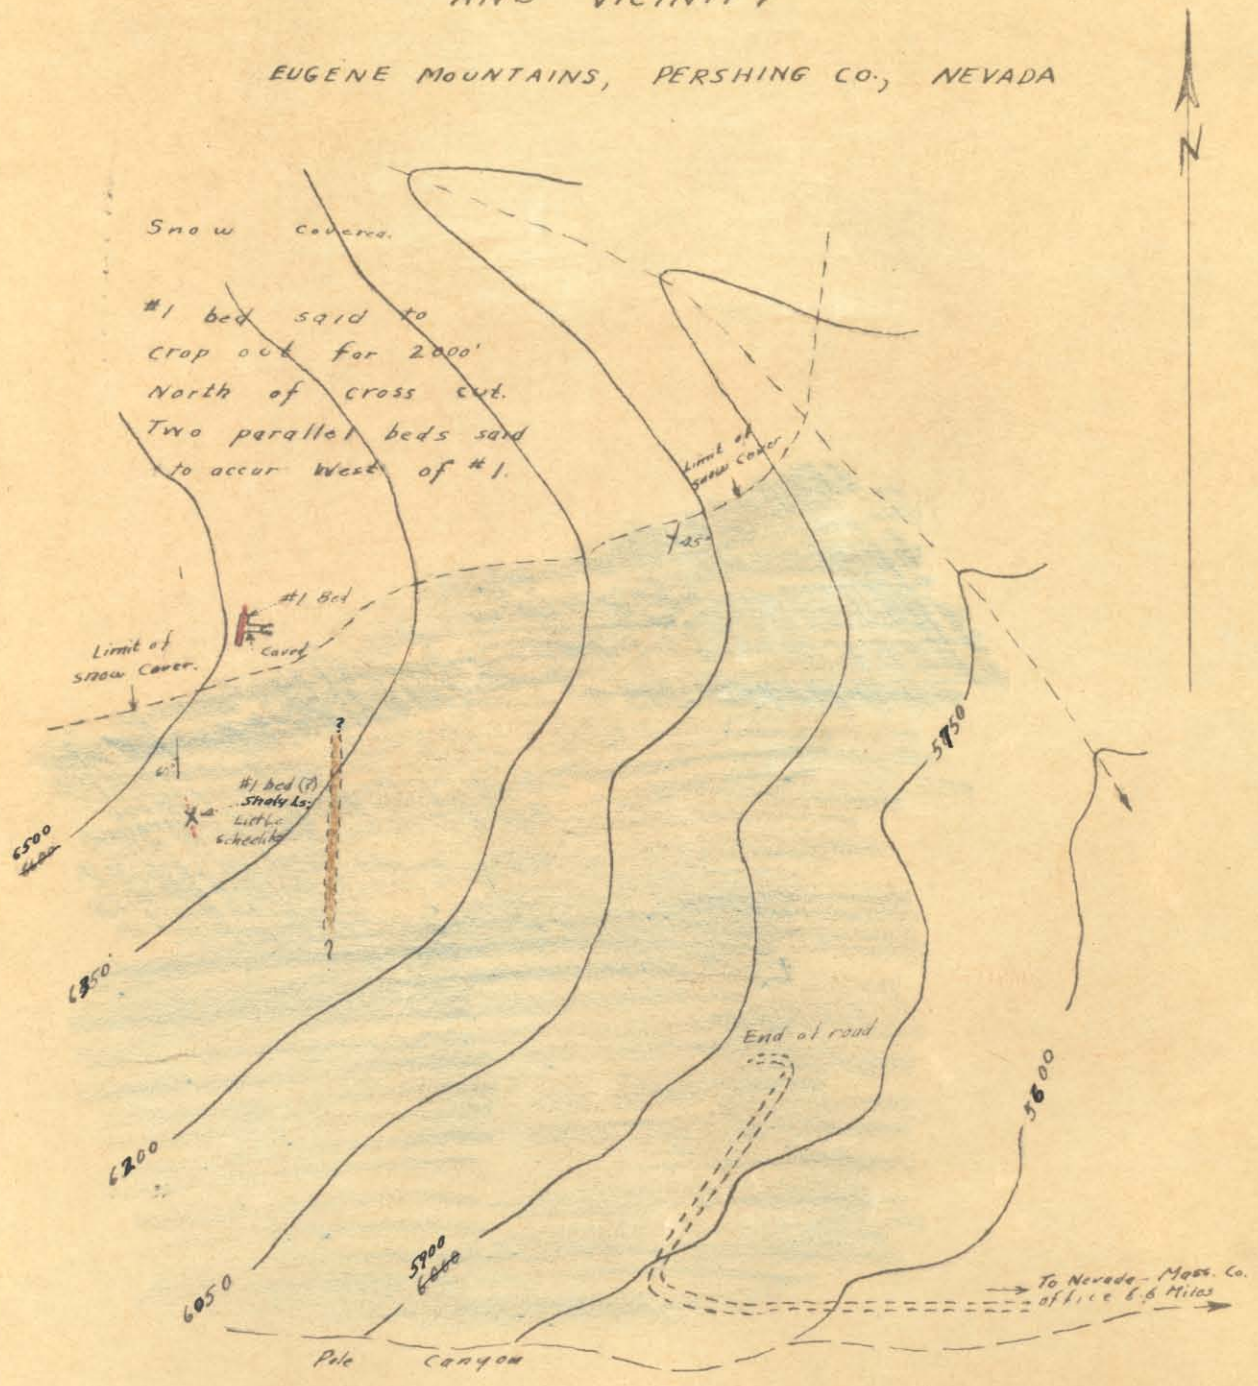 AND VICINITY
EUGENE MOUNTAINS, PERSHING CO., NEVADA
N
Snow covered.
#1 bed said to
crop out for 2000'
North of cross cut.
Two parallel beds said
to occur West of #1.
Limit of
snow cover
#1 Bed
Caved
Limit of
snow Cover.
?
#1 bed (?)
Shaly Ls.
Little
scheelite
?
6500
6600
6350
6200
6050
5900
6000
5750
5600
End of road
To Nevada-Mass. Co.
office 6.6 Miles
Pole Canyon